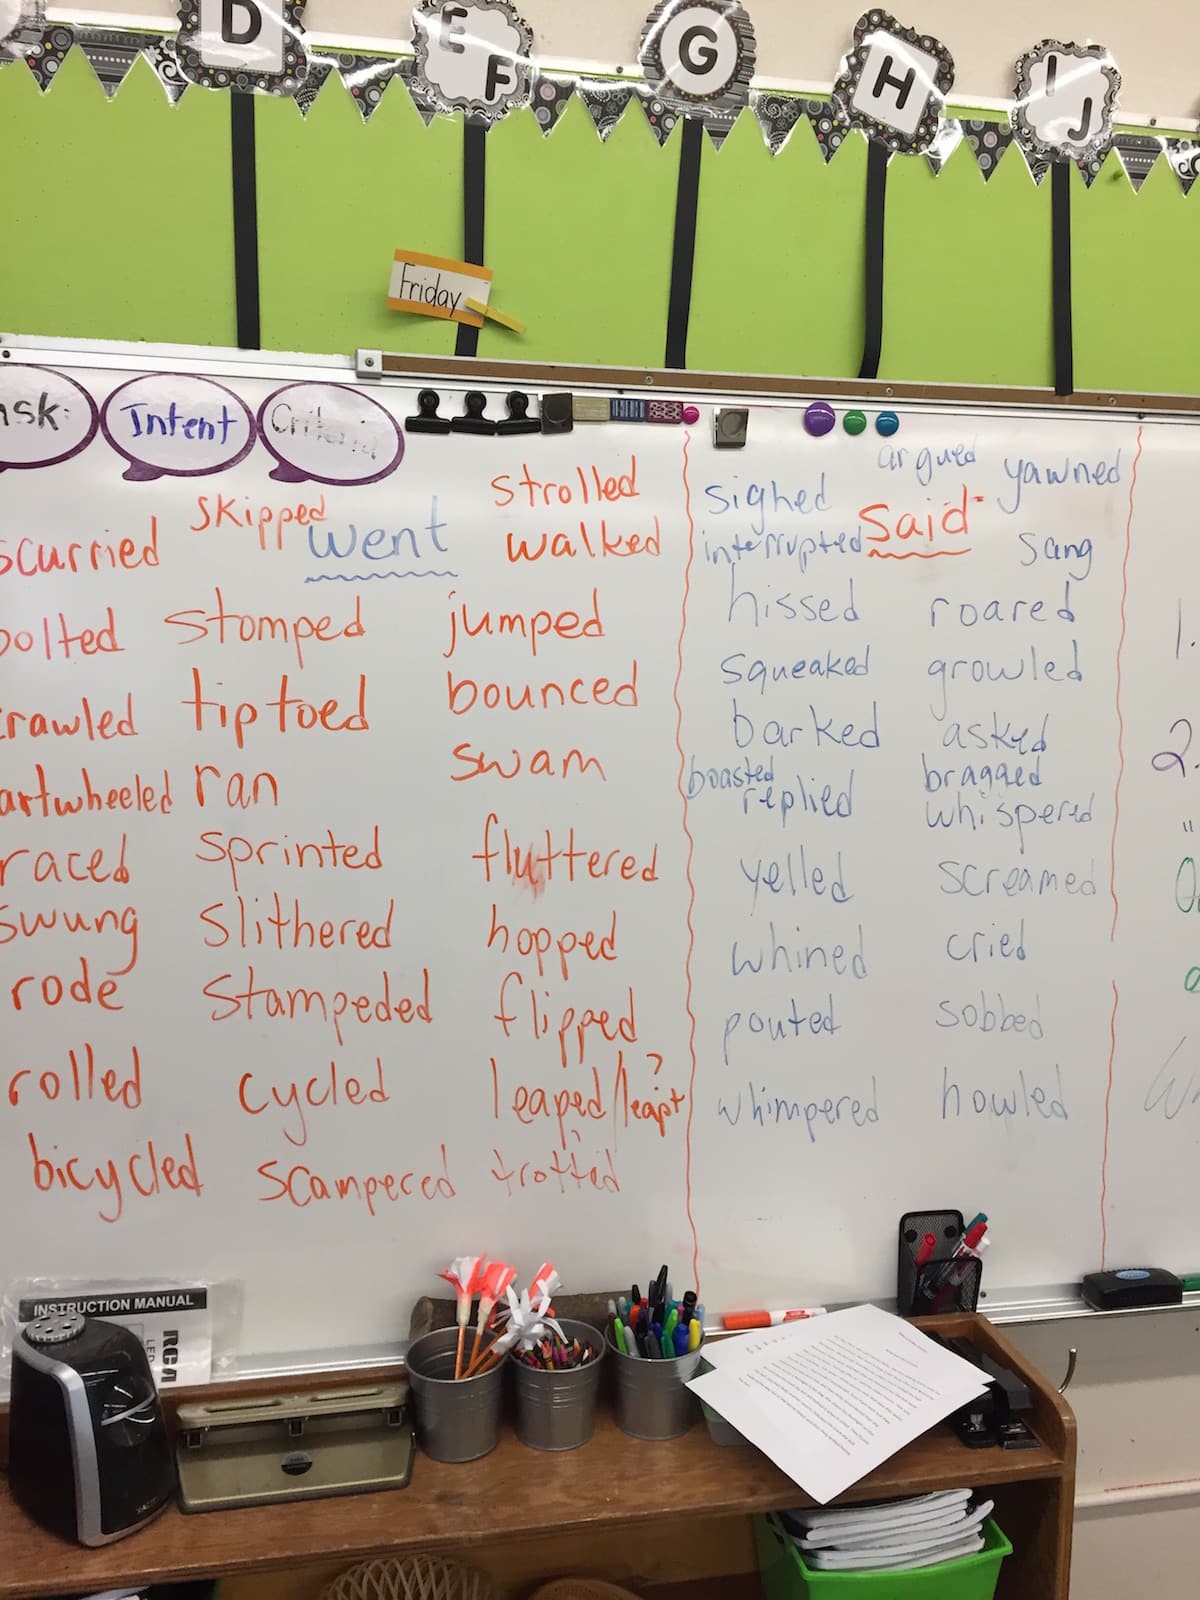 D
E F
G
H
I J
Friday
Intent
Criteria
skipped
went
strolled
walked
scurried
stomped
jumped
bolted
tiptoed
bounced
crawled
ran
swam
artwheeled
sprinted
fluttered
raced
slithered
hopped
swung
stampeded
flipped
rode
cycled
leaped/leapt ?
rolled
scampered
trotted
bicycled
argued
yawned
sighed
Said
interrupted
sang
hissed
roared
squeaked
growled
barked
asked
boasted
bragged
replied
whispered
yelled
screamed
whined
cried
pouted
sobbed
whimpered
howled
1.
2.
INSTRUCTION MANUAL
RCA
LED